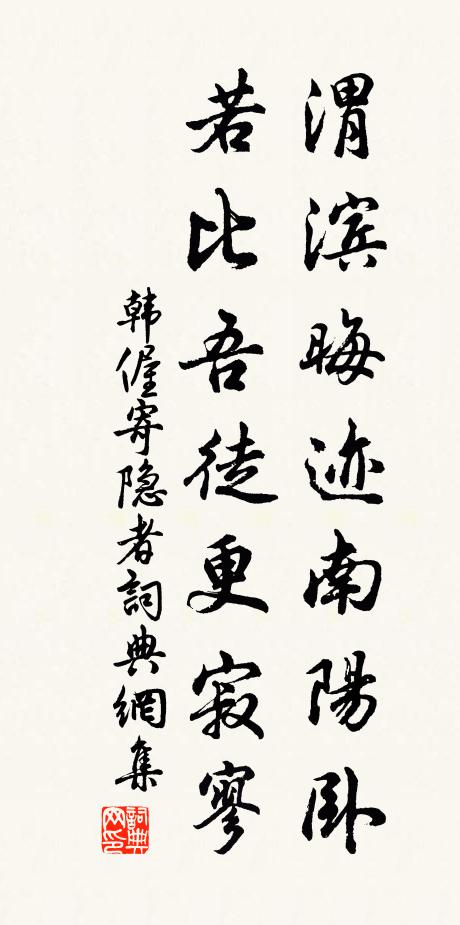 渭滨晦迹南陽卧
若比吾徒更寂寥
韩偓寄隐者詞典網集
詞典
网印